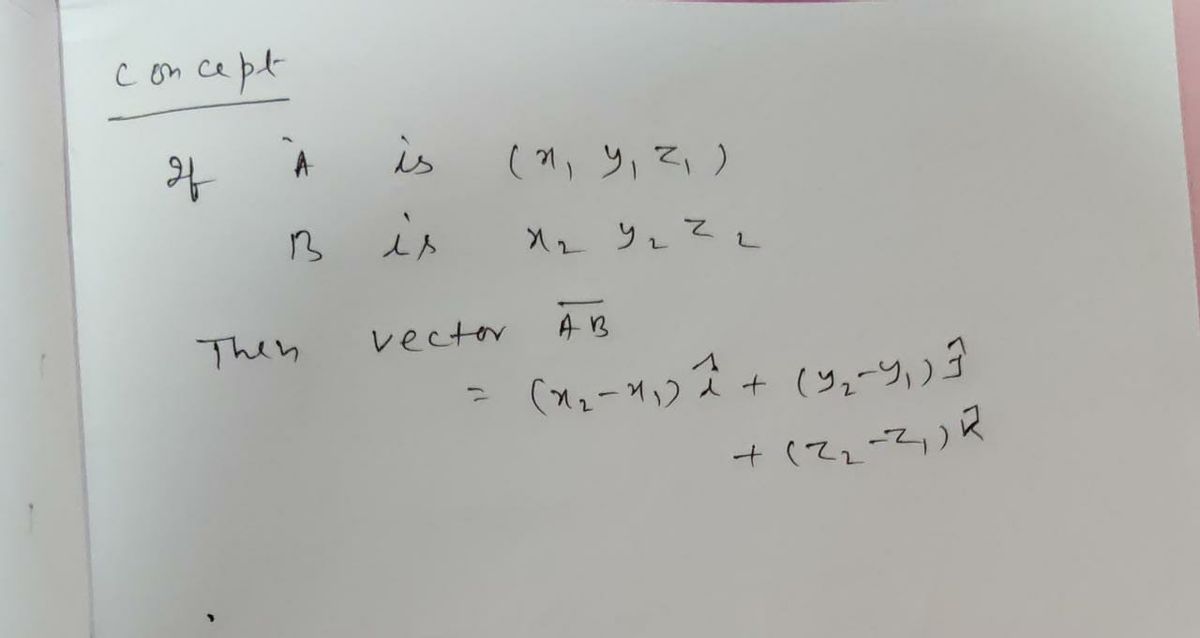 concept
If A is (x₁ y₁ z₁)
B is x₂ y₂ z₂
Then vector A̅B̅
= (x₂-x₁) î + (y₂-y₁) ĵ
+ (z₂-z₁) k̂